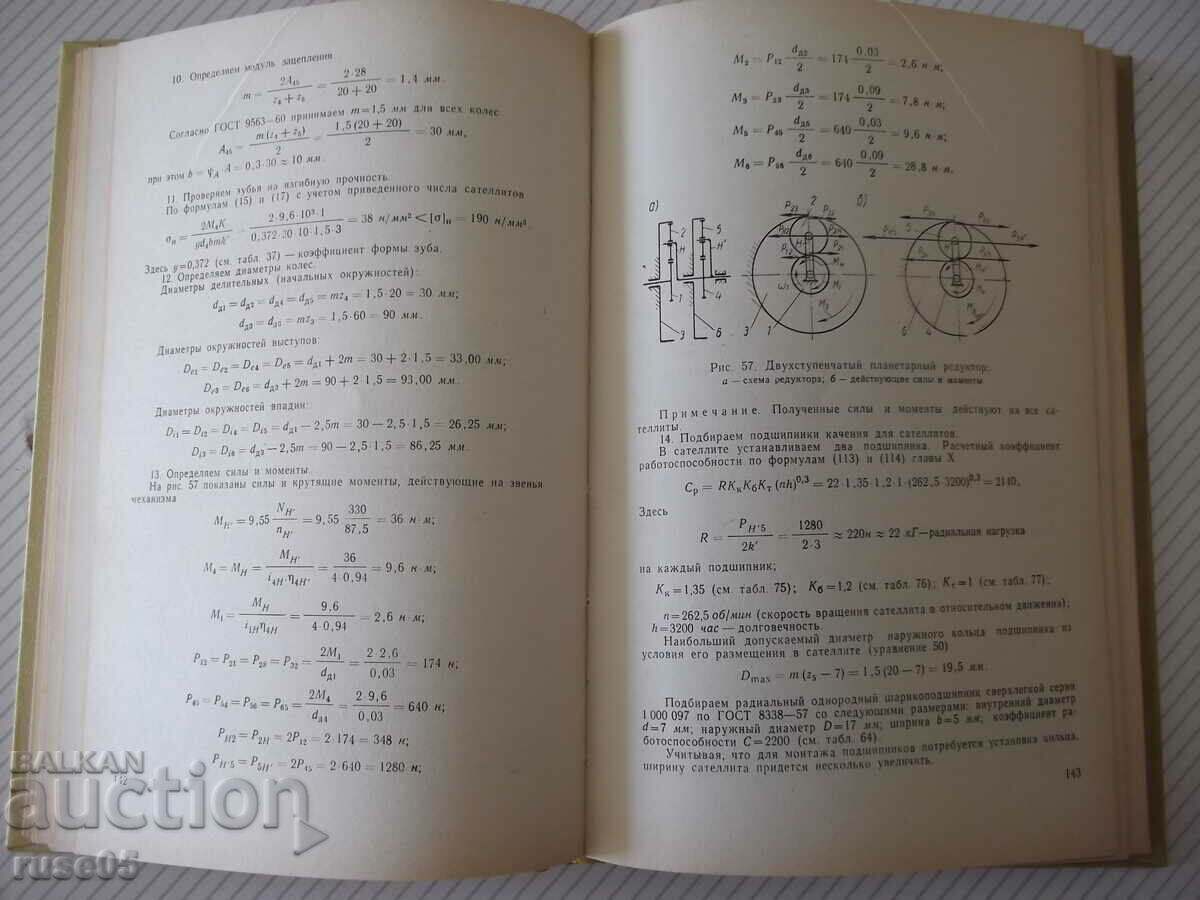 10. Определяем модуль зацепления
m = 2A₄₅ / (z₄ + z₅) = 2·28 / (20 + 20) = 1,4 мм.
Согласно ГОСТ 9563—60 принимаем m = 1,5 мм для всех колес
A₄₅ = m (z₄ + z₅) / 2 = 1,5 (20 + 20) / 2 = 30 мм,
при этом b = ψ_A A = 0,3·30 ≈ 10 мм.
11. Проверяем зубья на изгибную прочность.
По формулам (15) и (17) с учетом приведенного числа сателлитов
σ_и = 2M₄K / yd₄bmk′ = 2·9,6·10³·1 / 0,372·30·10·1,5·3 = 38 н/мм² < [σ]_и = 190 н/мм².
Здесь y=0,372 (см. табл. 37) — коэффициент формы зуба.
12. Определяем диаметры колес.
Диаметры делительных (начальных окружностей):
d_д1 = d_д2 = d_д4 = d_д5 = mz₄ = 1,5·20 = 30 мм;
d_д3 = d_д6 = mz₃ = 1,5·60 = 90 мм.
Диаметры окружностей выступов:
D_е1 = D_е2 = D_е4 = D_е5 = d_д1 + 2m = 30 + 2·1,5 = 33,00 мм;
D_е3 = D_е6 = d_д3 + 2m = 90 + 2·1,5 = 93,00 мм.
Диаметры окружностей впадин:
D_i1 = D_i2 = D_i4 = D_i5 = d_д1 — 2,5m = 30 — 2,5·1,5 = 26,25 мм;
D_i3 = D_i6 = d_д3 — 2,5m = 90 — 2,5·1,5 = 86,25 мм.
13. Определяем силы и моменты.
На рис. 57 показаны силы и крутящие моменты, действующие на звенья
механизма
M_H′ = 9,55 N_H′ / n_H′ = 9,55 330 / 87,5 = 36 н·м;
M₄ = M_H = M_H′ / i₄H′η₄H′ = 36 / 4·0,94 = 9,6 н·м;
M₁ = M_H / i₁Hη₄H = 9,6 / 4·0,94 = 2,6 н·м;
P₁₂ = P₂₁ = P₂₃ = P₃₂ = 2M₁ / d_д1 = 2·2,6 / 0,03 = 174 н;
P₄₅ = P₅₄ = P₅₆ = P₆₅ = 2M₄ / d_д4 = 2·9,6 / 0,03 = 640 н;
P_H2 = P_2H = 2P₁₂ = 2·174 = 348 н;
P_H′5 = P_5H′ = 2P₄₅ = 2·640 = 1280 н;
142
M₂ = P₁₂ d_д2 / 2 = 174 0,03 / 2 = 2,6 н·м;
M₃ = P₂₃ d_д3 / 2 = 174 0,09 / 2 = 7,8 н·м;
M₅ = P₄₅ d_д5 / 2 = 640 0,03 / 2 = 9,6 н·м;
M₆ = P₅₆ d_д6 / 2 = 640 0,09 / 2 = 28,8 н·м.
а) 2 5 H H′ 1 4 3 6
2 P₂₃ P₁₂ P₂₁ H M_H M₁ ω₁ M₃ 3 1
б) 5 6 4
Рис. 57. Двухступенчатый планетарный редуктор:
а — схема редуктора; б — действующие силы и моменты
Примечание. Полученные силы и моменты действуют на все са-
теллиты.
14. Подбираем подшипники качения для сателлитов.
В сателлите устанавливаем два подшипника. Расчетный коэффициент
работоспособности по формулам (113) и (114) главы X
C_р = RK_кK_бK_т (nh)^0,3 = 22·1,35·1,2·1·(262,5·3200)^0,3 = 2140,
Здесь
R = P_H′5 / 2k′ = 1280 / 2·3 ≈ 220н ≈ 22 кГ—радиальная нагрузка
на каждый подшипник;
K_к = 1,35 (см. табл. 75); K_б = 1,2 (см. табл. 76); K_т = 1 (см. табл. 77);
n = 262,5 об/мин (скорость вращения сателлита в относительном движении);
h=3200 час — долговечность.
Наибольший допускаемый диаметр наружного кольца подшипника из
условия его размещения в сателлите (уравнение 50)
D_max = m (z₅ — 7) = 1,5 (20 — 7) = 19,5 мм.
Подбираем радиальный однорядный шарикоподшипник сверхлегкой серии
1 000 097 по ГОСТ 8338—57 со следующими размерами: внутренний диаметр
d=7 мм; наружный диаметр D=17 мм; ширина b=5 мм; коэффициент ра-
ботоспособности C=2200 (см. табл. 64).
Учитывая, что для монтажа подшипников потребуется установка кольца,
ширину сателлита придется несколько увеличить.
143
BALKAN
auction
ruse05